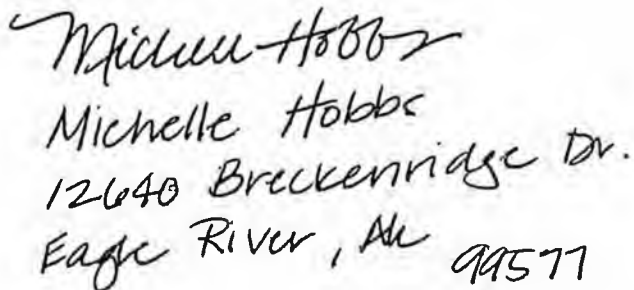 Michelle Hobbs
Michelle Hobbs
12640 Breckenridge Dr.
Eagle River, AK 99577